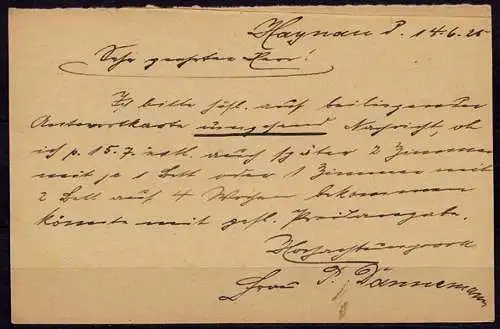 Haynau P. 14.6.25
Sehr geehrter Herr!
Ich bitte höfl. auf beiliegender
Antwortkarte umgehend Nachricht, ob
ich p. 15.7. evtl. auch später 2 Zimmer
mit je 1 Bett oder 1 Zimmer mit
2 Bett auf 4 Wochen bekommen
könnte mit gefl. Preisangabe.
Hochachtungsvoll
Frau P. Dannemann